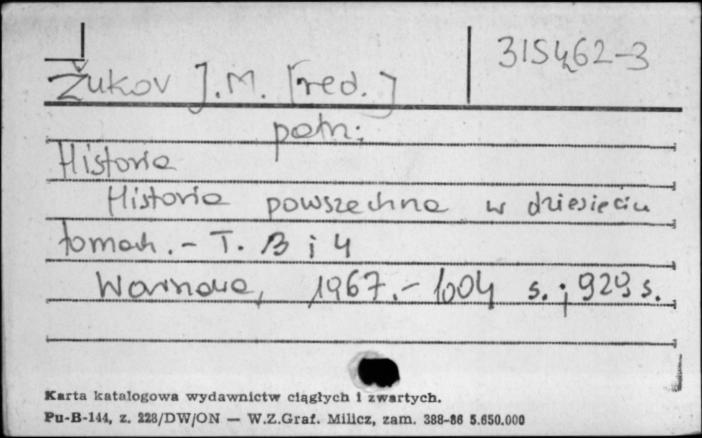 315462-3
Žukov J.M. [red.]
patrz:
Historia
Historia powszechna w dziesięciu
tomach. - T. 3 i 4
Warszawa, 1967. - 1004 s. ; 929 s.
Karta katalogowa wydawnictw ciągłych i zwartych.
Pu-B-144, z. 228/DW/ON — W.Z.Graf. Milicz, zam. 388-86 5.650.000